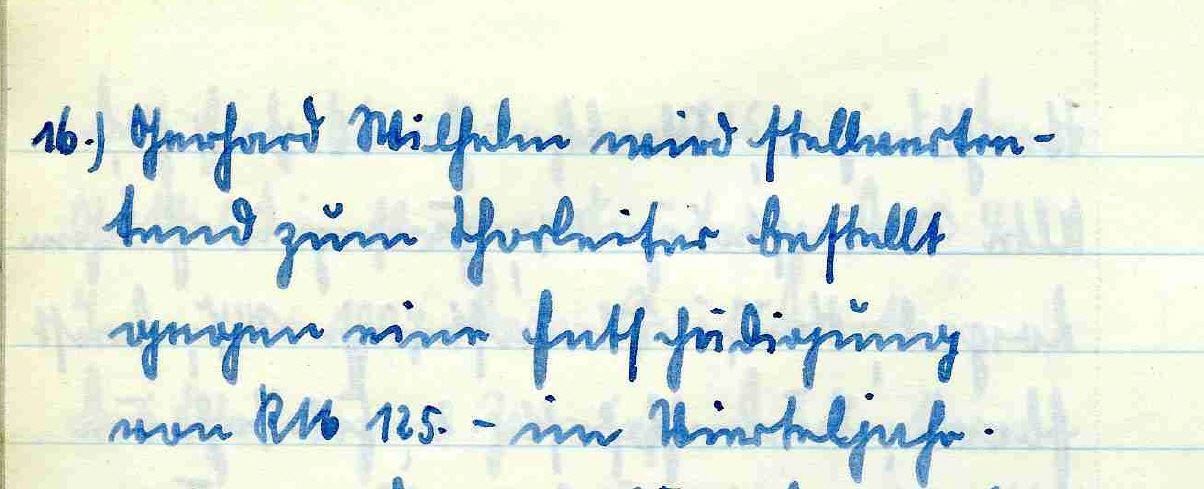 16.) Gerhard Wilhelm wird stellvertre-
tend zum Chorleiter bestellt
gegen eine Entschädigung
von RM 125.- im Vierteljahr.